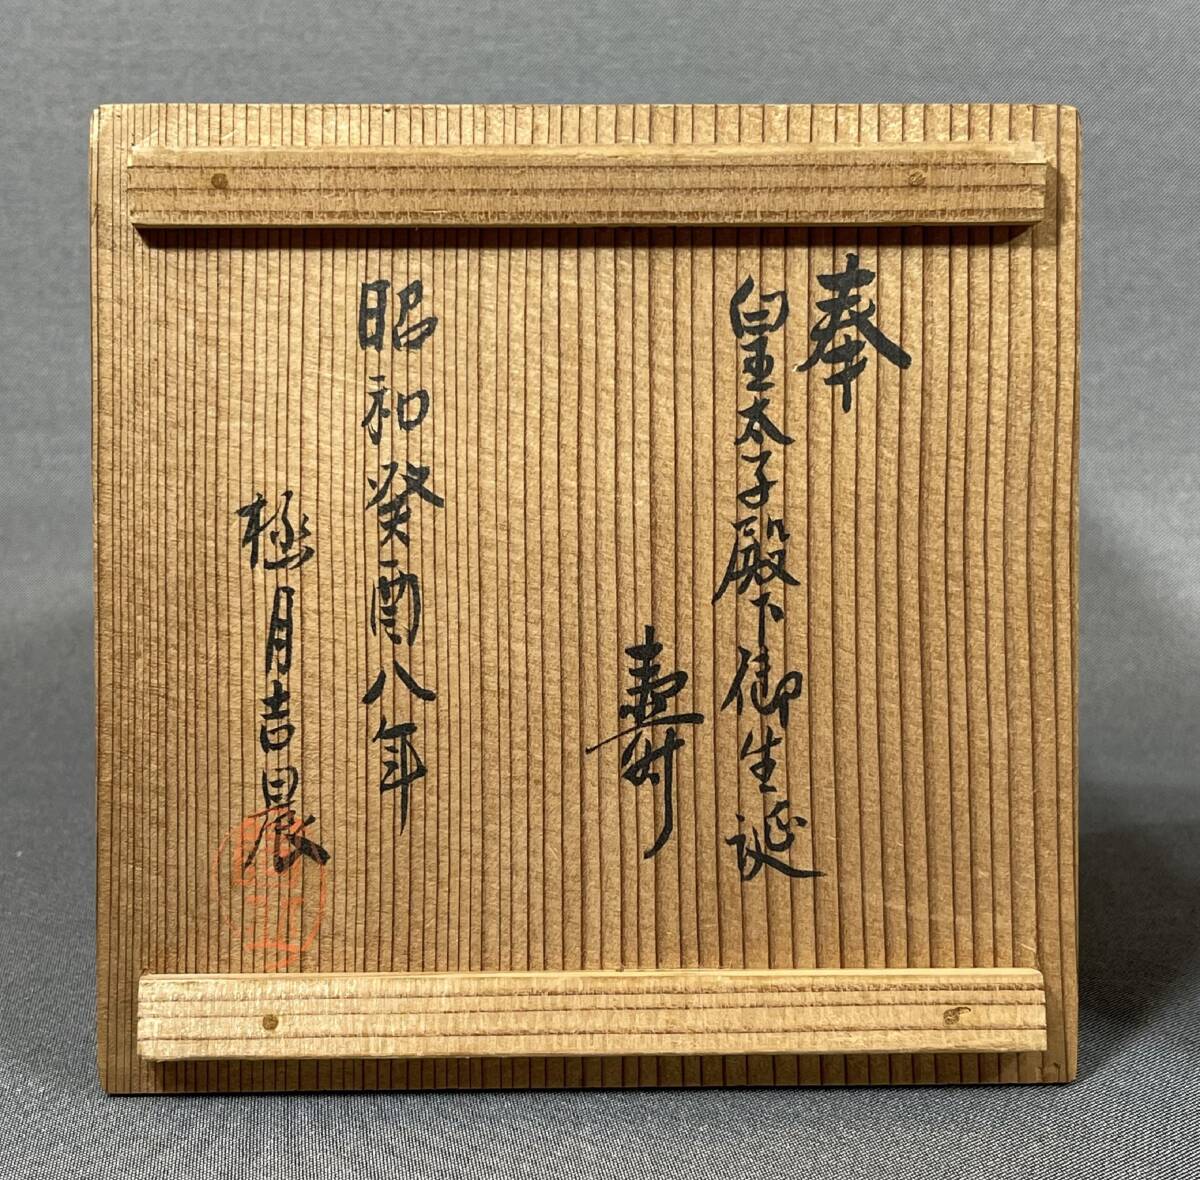 奉
皇太子殿下御生誕
壽
昭和癸酉八年
極月吉晨